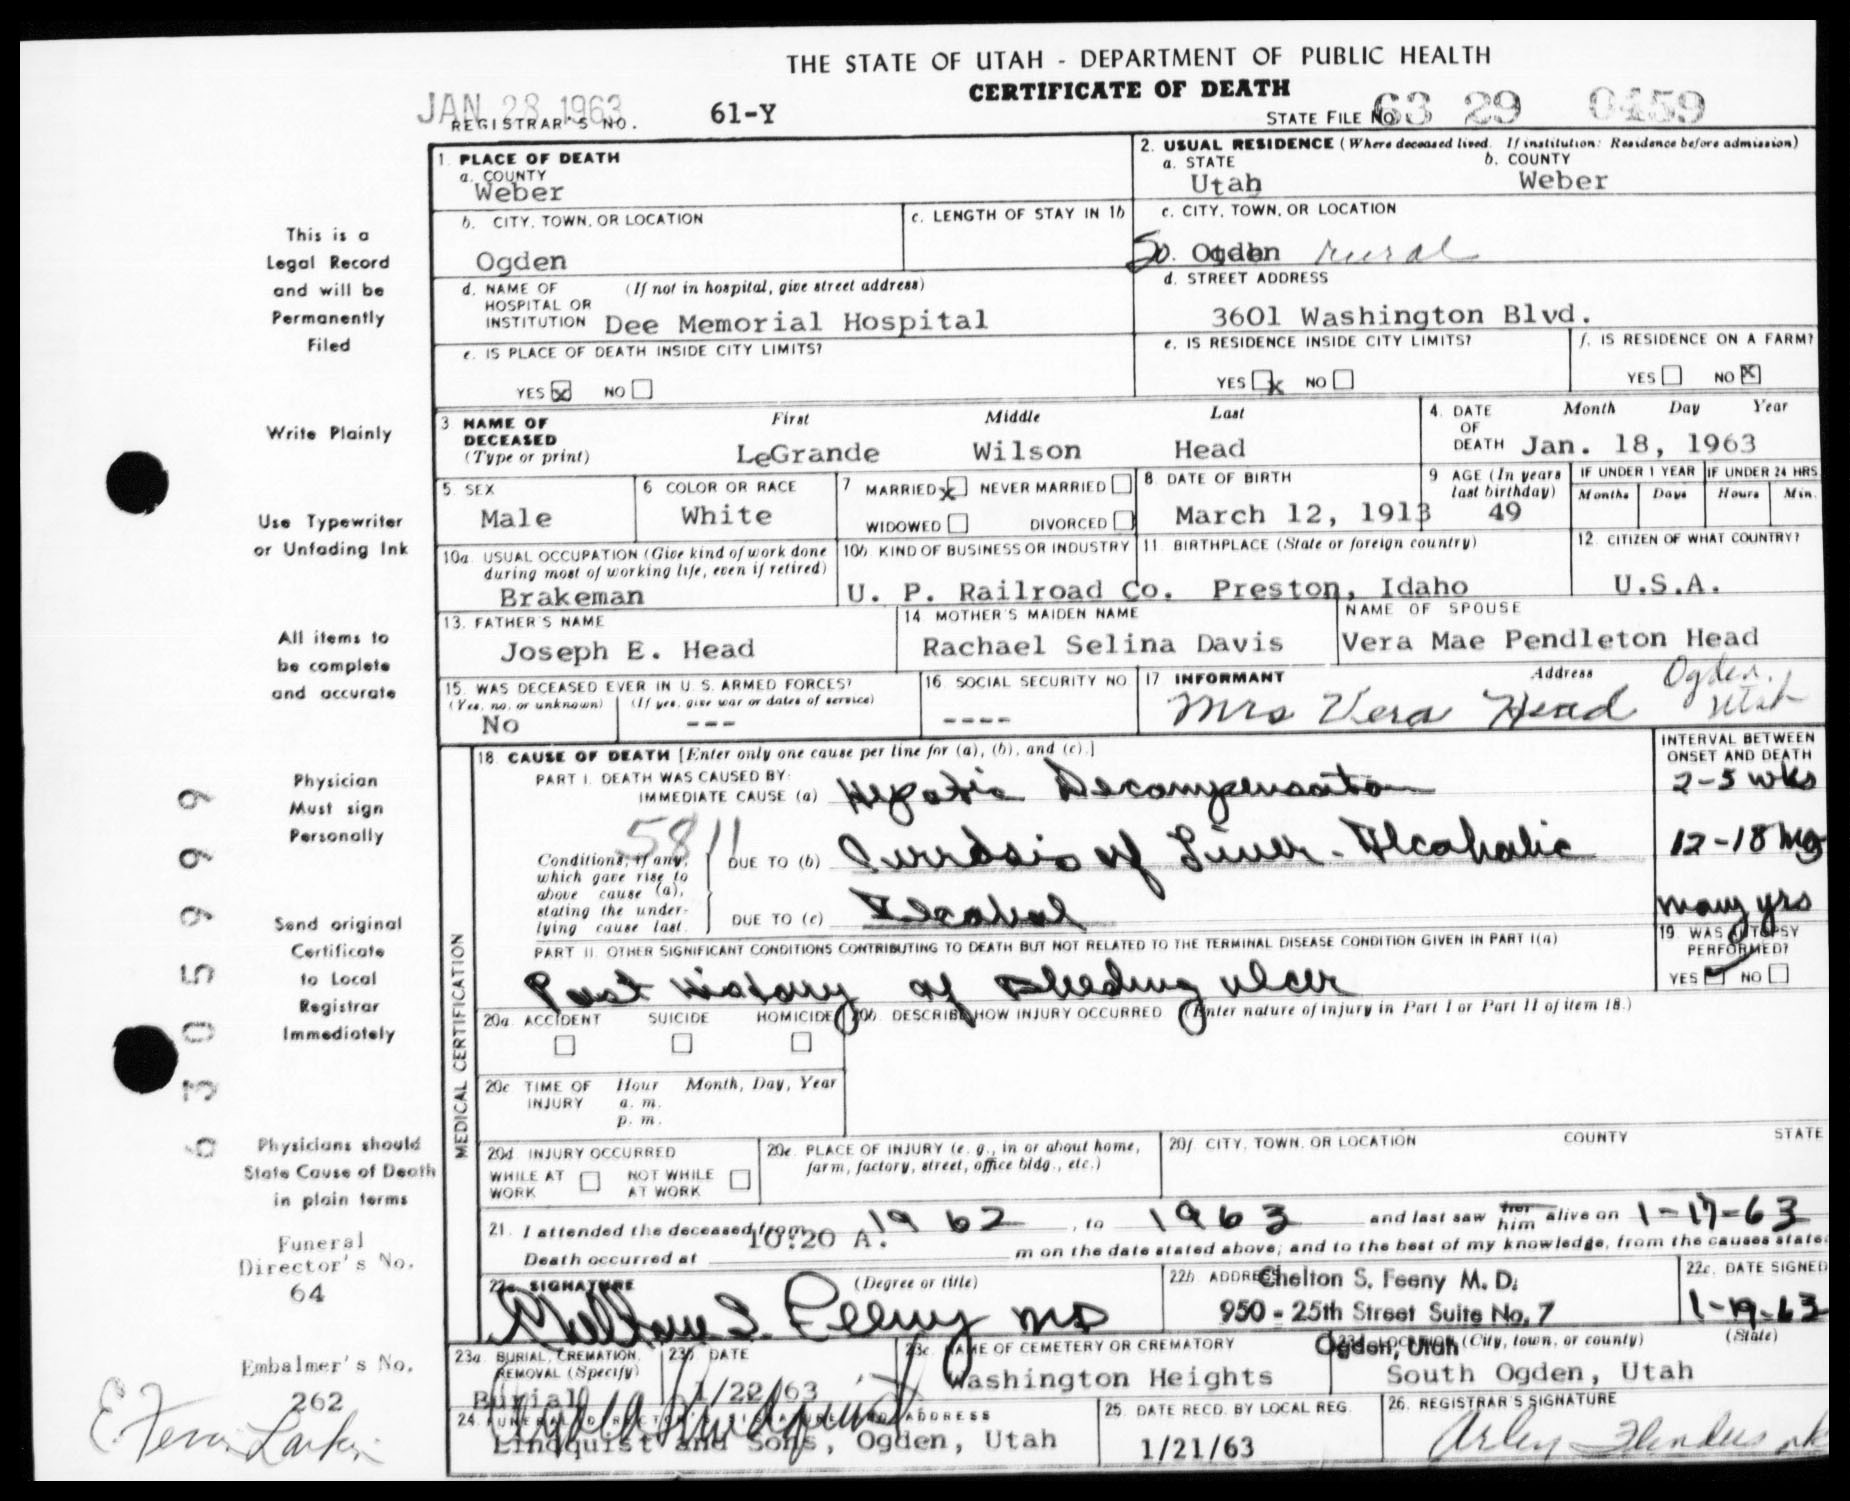 THE STATE OF UTAH - DEPARTMENT OF PUBLIC HEALTH
CERTIFICATE OF DEATH
JAN 28 1963
REGISTRAR'S NO. 61-Y
STATE FILE NO. 63 29 0459
1. PLACE OF DEATH
a. COUNTY
Weber
2. USUAL RESIDENCE (Where deceased lived. If institution: Residence before admission)
a. STATE b. COUNTY
Utah Weber
b. CITY, TOWN, OR LOCATION
Ogden
c. LENGTH OF STAY IN 1b
c. CITY, TOWN, OR LOCATION
So. Ogden rural
d. NAME OF (If not in hospital, give street address)
HOSPITAL OR
INSTITUTION Dee Memorial Hospital
d. STREET ADDRESS
3601 Washington Blvd.
e. IS PLACE OF DEATH INSIDE CITY LIMITS?
YES x NO
e. IS RESIDENCE INSIDE CITY LIMITS?
YES x NO
f. IS RESIDENCE ON A FARM?
YES NO x
3 NAME OF First Middle Last
DECEASED
(Type or print) LeGrande Wilson Head
4. DATE Month Day Year
OF
DEATH Jan. 18, 1963
5. SEX
Male
6 COLOR OR RACE
White
7 MARRIED x NEVER MARRIED
WIDOWED DIVORCED
8. DATE OF BIRTH
March 12, 1913
9 AGE (In years
last birthday)
49
IF UNDER 1 YEAR IF UNDER 24 HRS
Months Days Hours Min.
10a. USUAL OCCUPATION (Give kind of work done
during most of working life, even if retired)
Brakeman
10b. KIND OF BUSINESS OR INDUSTRY
U. P. Railroad Co.
11. BIRTHPLACE (State or foreign country)
Preston, Idaho
12. CITIZEN OF WHAT COUNTRY?
U.S.A.
13. FATHER'S NAME
Joseph E. Head
14 MOTHER'S MAIDEN NAME
Rachael Selina Davis
NAME OF SPOUSE
Vera Mae Pendleton Head
15. WAS DECEASED EVER IN U. S. ARMED FORCES?
(Yes, no, or unknown) (If yes, give war or dates of service)
No ---
16. SOCIAL SECURITY NO.
----
17 INFORMANT Address
Mrs Vera Head Ogden, Utah
18. CAUSE OF DEATH [Enter only one cause per line for (a), (b), and (c).]
INTERVAL BETWEEN
ONSET AND DEATH
PART I. DEATH WAS CAUSED BY:
IMMEDIATE CAUSE (a) Hepatic Decompensation 2-5 wks
5811
Conditions, if any,
which gave rise to
above cause (a),
stating the under-
lying cause last.
DUE TO (b) Cirrhosis of Liver - Alcoholic 12-18 mo
DUE TO (c) Alcohol many yrs
PART II. OTHER SIGNIFICANT CONDITIONS CONTRIBUTING TO DEATH BUT NOT RELATED TO THE TERMINAL DISEASE CONDITION GIVEN IN PART I(a)
Past history of bleeding ulcer
19 WAS AUTOPSY
PERFORMED?
YES NO
20a. ACCIDENT SUICIDE HOMICIDE
20b. DESCRIBE HOW INJURY OCCURRED (Enter nature of injury in Part I or Part II of item 18.)
20c TIME OF Hour Month, Day, Year
INJURY a. m.
p. m.
20d. INJURY OCCURRED
WHILE AT WORK NOT WHILE AT WORK
20e. PLACE OF INJURY (e. g., in or about home,
farm, factory, street, office bldg., etc.)
20f. CITY, TOWN, OR LOCATION COUNTY STATE
21. I attended the deceased from 1962, to 1963 and last saw her him alive on 1-17-63
Death occurred at 10:20 A. m on the date stated above; and to the best of my knowledge, from the causes state
22a. SIGNATURE (Degree or title)
Chelton S. Feeny MD
22b. ADDRESS Chelton S. Feeny M. D.
950 - 25th Street Suite No. 7
Ogden, Utah
22c. DATE SIGNED
1-19-63
23a. BURIAL, CREMATION,
REMOVAL (Specify)
Burial
23b DATE
1/22/63
23c. NAME OF CEMETERY OR CREMATORY
Washington Heights
23d. LOCATION (City, town, or county) (State)
South Ogden, Utah
24. FUNERAL DIRECTOR'S SIGNATURE AND ADDRESS
Lindquist and Sons, Ogden, Utah
25. DATE RECD. BY LOCAL REG.
1/21/63
26. REGISTRAR'S SIGNATURE
MEDICAL CERTIFICATION
This is a
Legal Record
and will be
Permanently
Filed
Write Plainly
Use Typewriter
or Unfading Ink
All items to
be complete
and accurate
Physician
Must sign
Personally
Send original
Certificate
to Local
Registrar
Immediately
Physicians should
State Cause of Death
in plain terms
Funeral
Director's No.
64
Embalmer's No.
262
E. Larkin
6 3 0 5 9 9 9